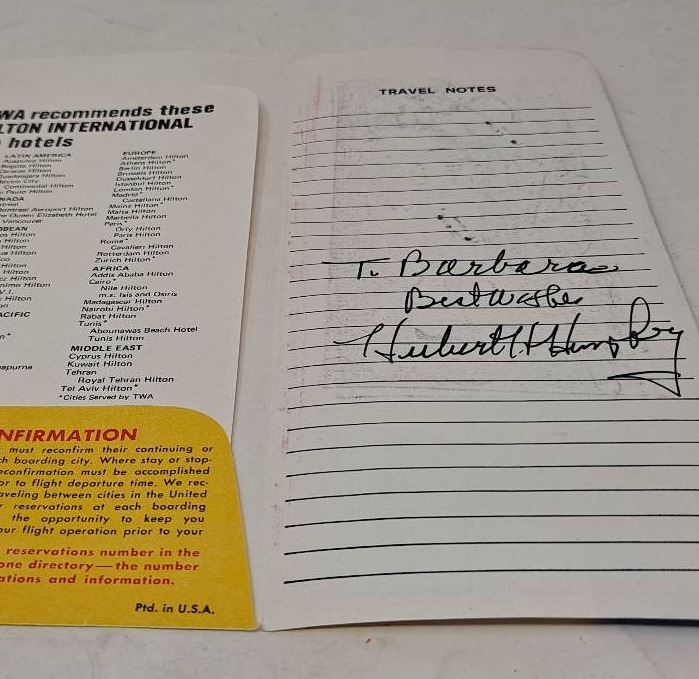 WA recommends these
LTON INTERNATIONAL
hotels
LATIN AMERICA
Acapulco Hilton
Bogota Hilton
Caracas Hilton
Guadalajara Hilton
Mexico City
Continental Hilton
Paulo Hilton
NADA
Montreal Aeroport Hilton
The Queen Elizabeth Hotel
Vancouver
BEAN
Hilton
Hilton
Hilton
Hilton
Hilton
V.I.
Hilton
ACIFIC
apurna
EUROPE
Amsterdam Hilton
Athens Hilton*
Berlin Hilton
Brussels Hilton
Dusseldorf Hilton
Istanbul Hilton
London Hilton*
Madrid*
Castellana Hilton
Mainz Hilton*
Malta Hilton
Marbella Hilton
Paris*
Orly Hilton
Paris Hilton
Rome*
Cavalieri Hilton
Rotterdam Hilton
Zurich Hilton*
AFRICA
Addis Ababa Hilton
Cairo*
Nile Hilton
m.s. Isis and Osiris
Madagascar Hilton
Nairobi Hilton*
Rabat Hilton
Tunis*
Abounawas Beach Hotel
Tunis Hilton
MIDDLE EAST
Cyprus Hilton
Kuwait Hilton
Tehran
Royal Tehran Hilton
Tel Aviv Hilton*
*Cities Served by TWA
NFIRMATION
must reconfirm their continuing or
ch boarding city. Where stay or stop-
econfirmation must be accomplished
or to flight departure time. We rec-
aveling between cities in the United
r reservations at each boarding
the opportunity to keep you
our flight operation prior to your
reservations number in the
one directory—the number
ations and information.
Ptd. in U.S.A.
TRAVEL NOTES
To Barbara
Best wishes
Hubert H Humphrey